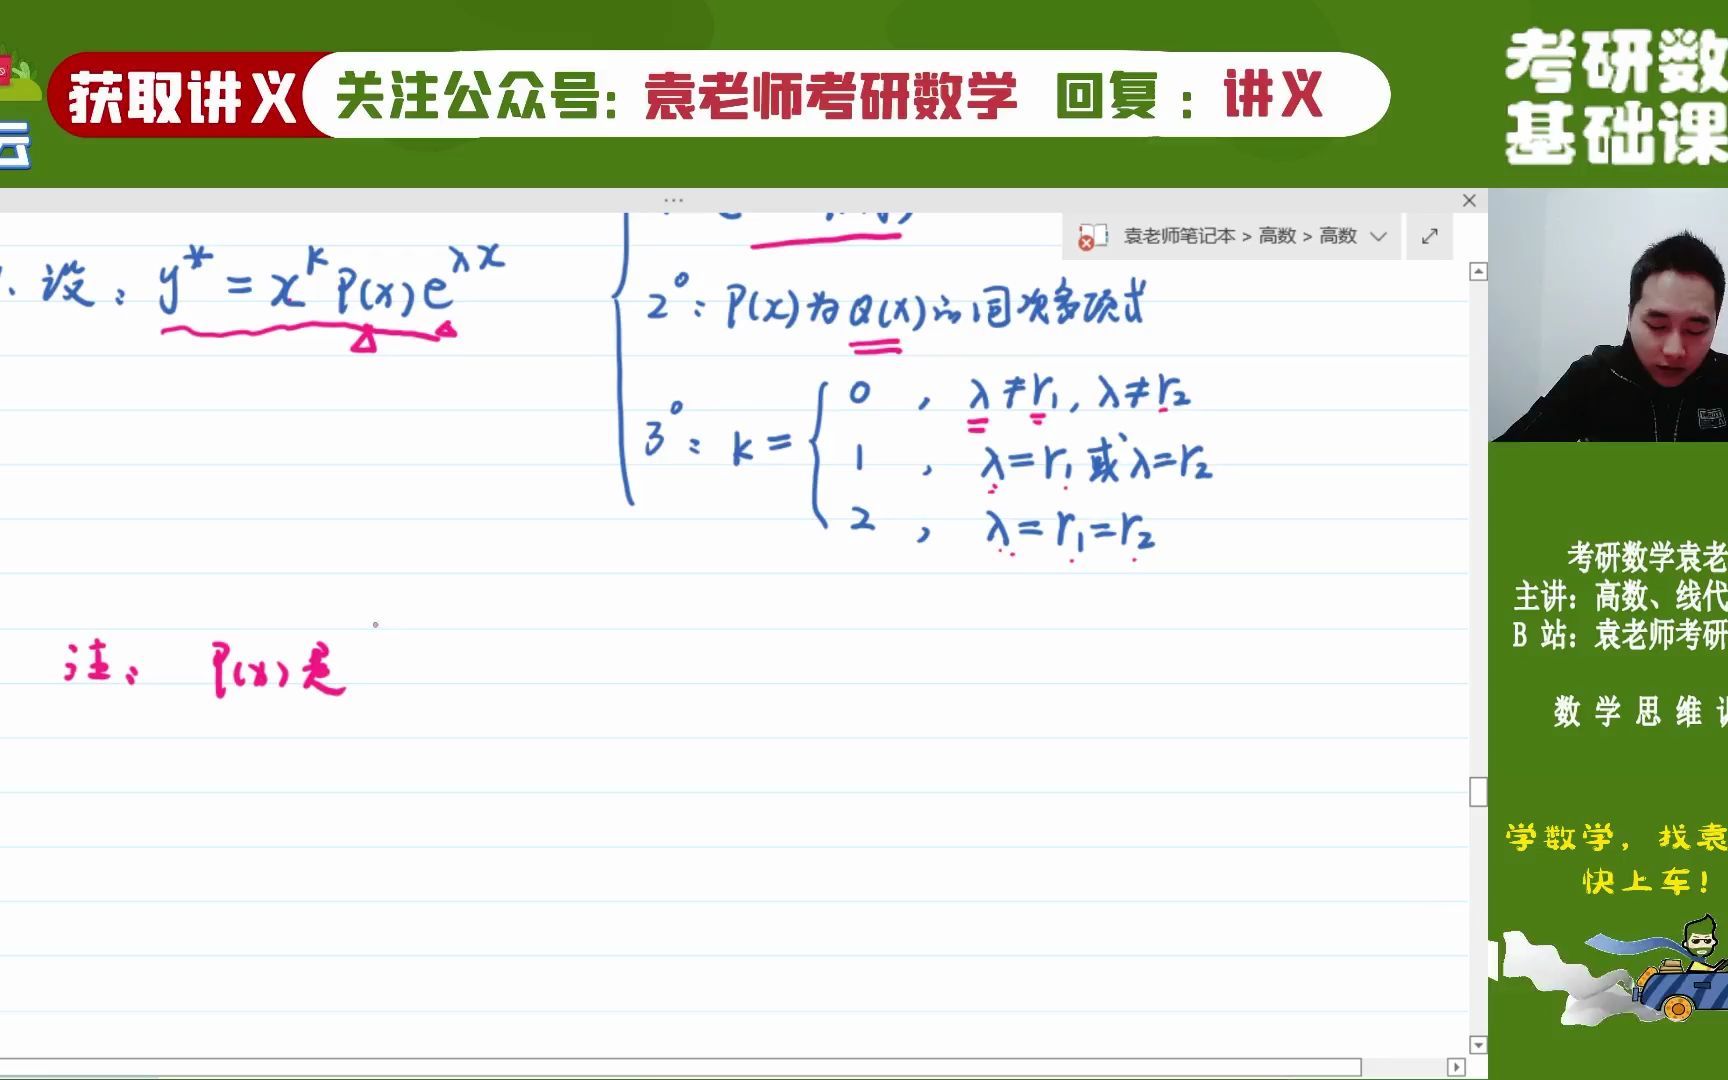 获取讲义 关注公众号: 袁老师考研数学 回复: 讲义
考研数
基础课
云
袁老师笔记本 > 高数 > 高数
设: y* = x^k P(x) e^{λx}
2°: P(x)为Q(x)的同次多项式
3°: k = { 0, λ≠r₁, λ≠r₂
1, λ=r₁或λ=r₂
2, λ=r₁=r₂
注: P(x)是
考研数学袁老
主讲: 高数、线代
B 站: 袁老师考研
数学思维
学数学, 找袁
快上车!